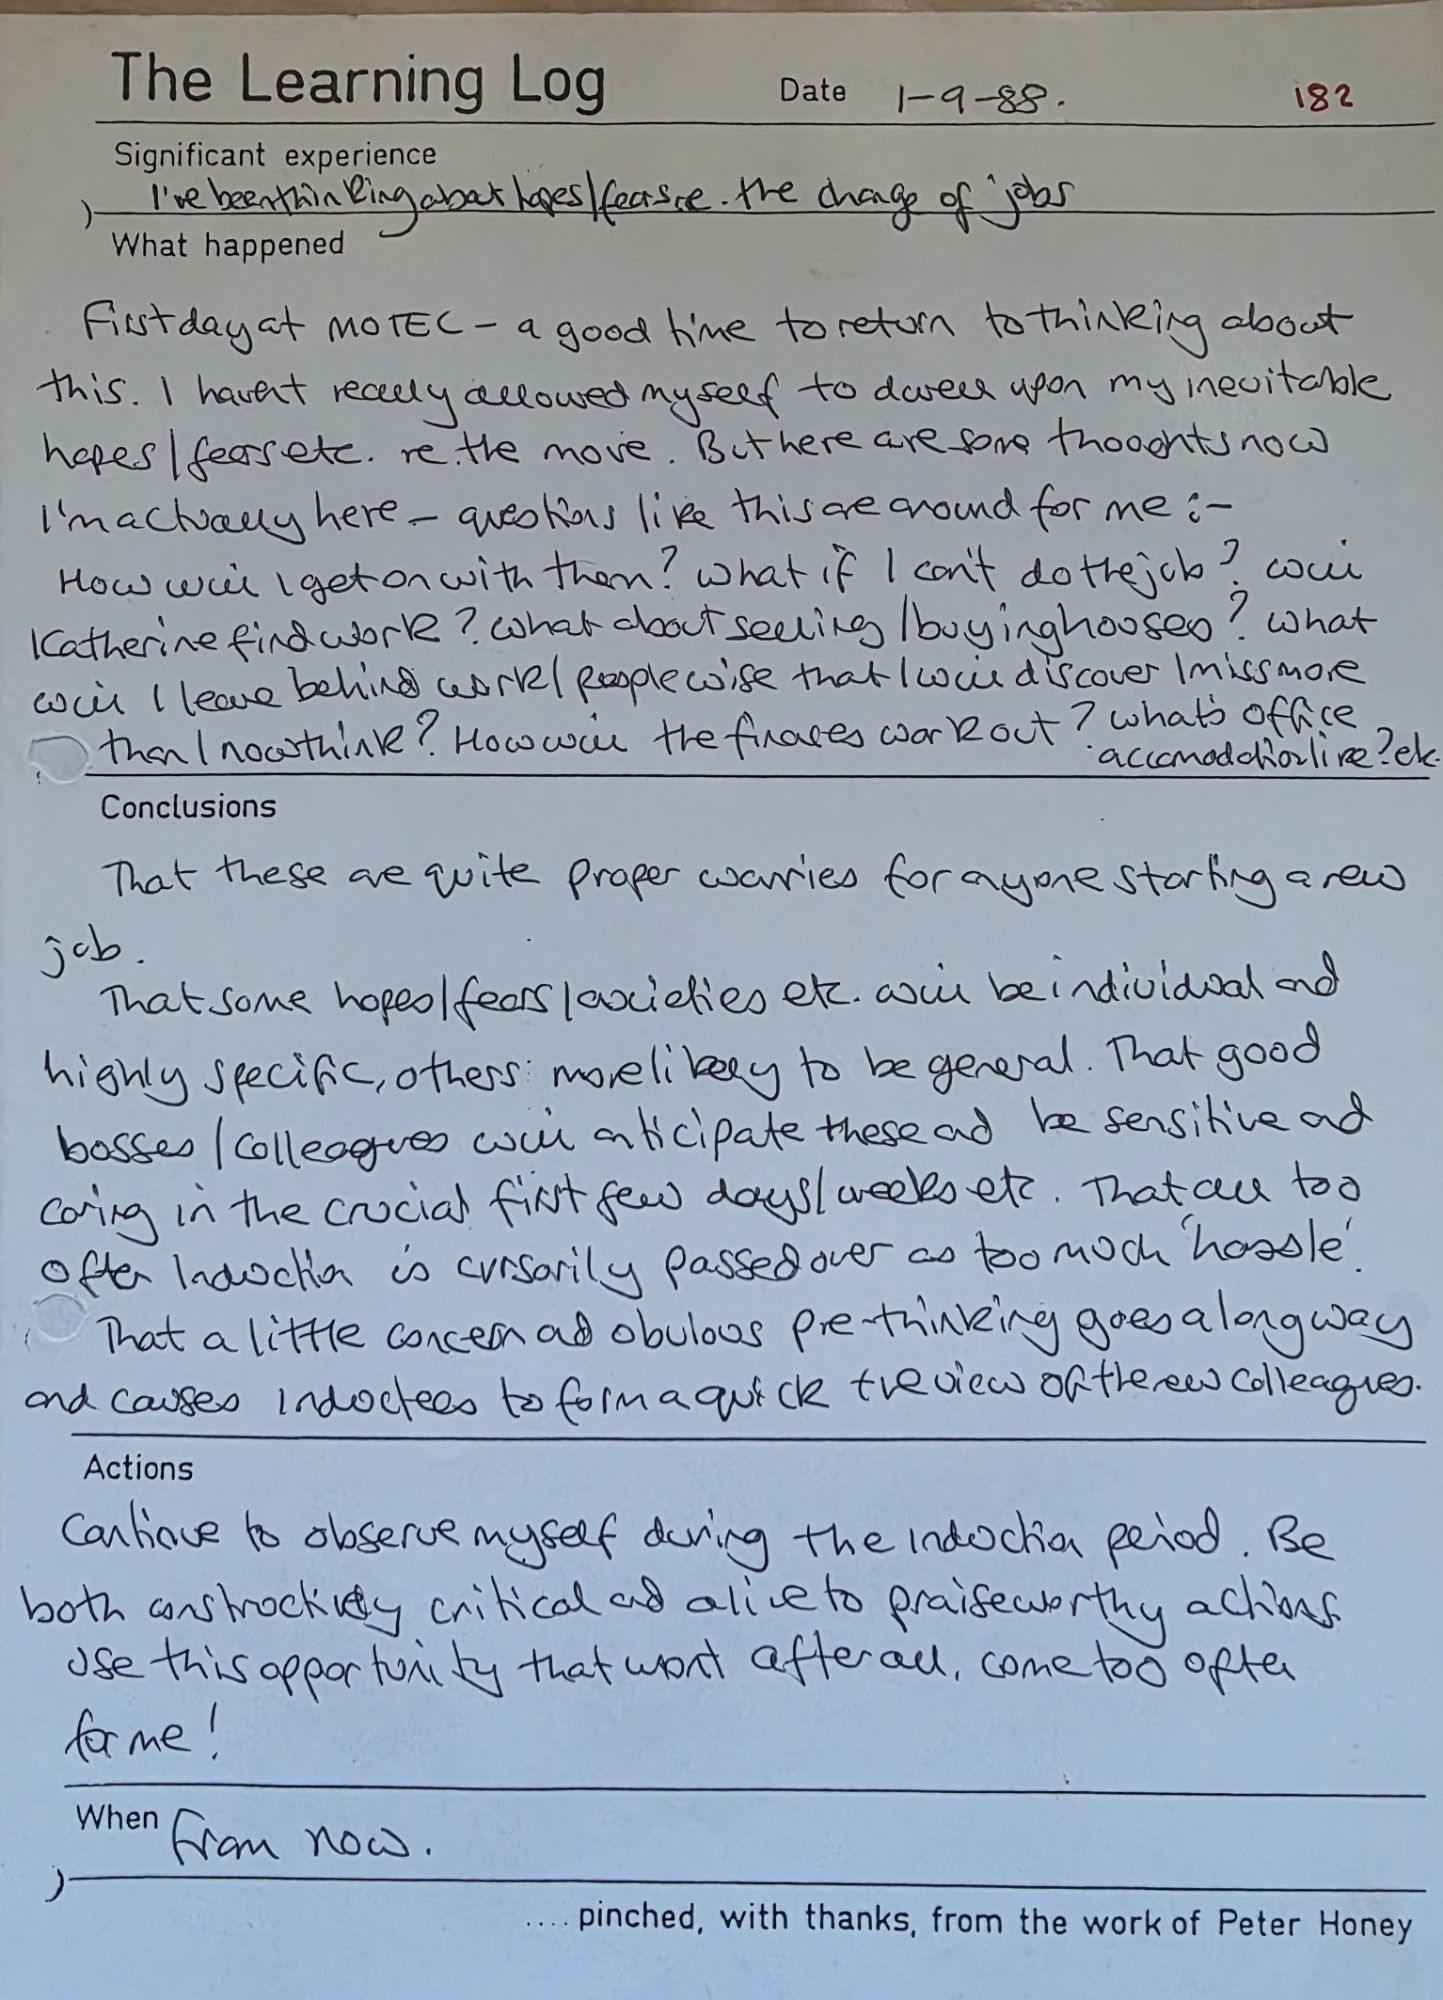 The Learning Log Date 1-9-88. 182
Significant experience
I've been thinking about hopes/fears re. the change of jobs
What happened
First day at MOTEC - a good time to return to thinking about
this. I havent really allowed myself to dwell upon my inevitable
hopes/fears etc. re. the move. But here are some thoughts now
I'm actually here - questions like this are around for me :-
How will I get on with them? What if I can't do the job? Will
Katherine find work? What about selling/buying houses? What
will I leave behind work/people wise that I will discover I miss more
than I now think? How will the finances work out? What's office
accomodation like? etc.
Conclusions
That these are quite proper worries for anyone starting a new
job.
That some hopes/fears/anxieties etc. will be individual and
highly specific, others more likely to be general. That good
bosses/colleagues will anticipate these and be sensitive and
caring in the crucial first few days/weeks etc. That all too
often Induction is cursorily passed over as too much 'hassle'.
That a little concern and obvious pre-thinking goes a long way
and causes inductees to form a quick +ve view of the new colleagues.
Actions
Continue to observe myself during the induction period. Be
both constructively critical and alive to praiseworthy actions.
Use this opportunity that wont after all, come too often
for me!
When From now.
.... pinched, with thanks, from the work of Peter Honey